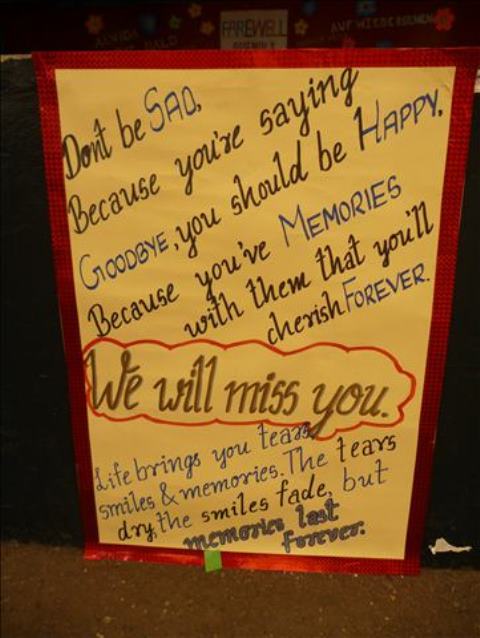 FAREWELL
AUF WIEDERSEHEN
Dont be SAD,
Because you're saying
GOODBYE, you should be HAPPY.
Because you've MEMORIES
with them that you'll
cherish FOREVER.
We will miss you.
Life brings you tears
smiles & memories. The tears
dry, the smiles fade, but
memories last
forever.